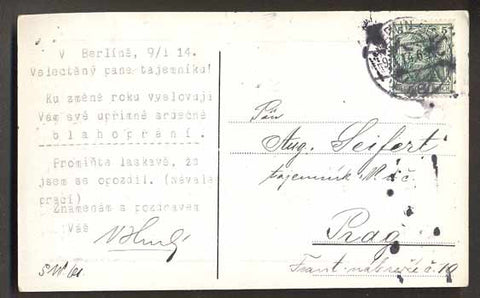 V Berlíně, 9/I 14.
Velectěný pane tajemníku!
Ku změně roku vyslovuji
Vám své upřímné srdečné
blahopřání.
Promiňte laskavě, že
jsem se opozdil. (Návala
prací)
Znamenám s pozdravem
Váš
Pán
Aug. Seifert
tajemník
Prag
Frant. nábřeží č. 10
5